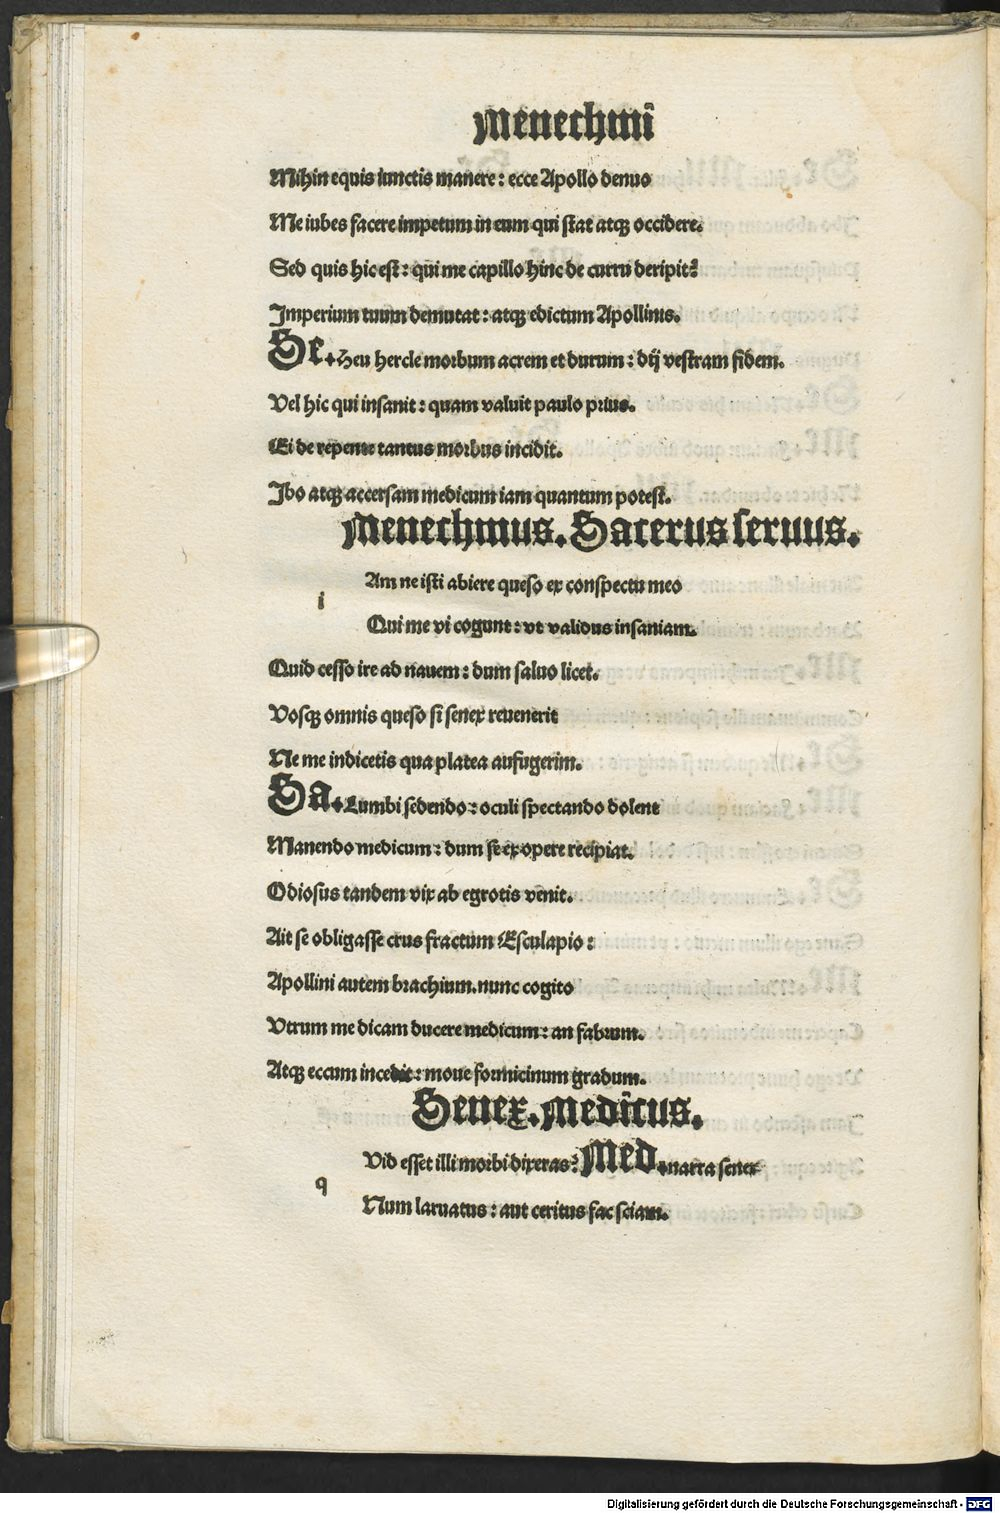 Menechmi
Mihin equis iunctis manere: ecce Apollo denuo
Me iubes facere impetum in eum qui stat atqꝫ occidere.
Sed quis hic est: qui me capillo hinc de curru deripit?
Imperium tuum demutat: atqꝫ edictum Apollinis.
Se. Heu hercle morbum acrem et durum: dij vestram fidem.
Vel hic qui insanit: quam valuit paulo prius.
Ei de repente tantus morbus incidit.
Ibo atqꝫ accersam medicum iam quantum potest.
Menechmus. Sacerus seruus.
Am ne isti abiere queso ex conspectu meo
i
Qui me vi cogunt: vt validus insaniam.
Quid cesso ire ad nauem: dum saluo licet.
Vosqꝫ omnis queso si senex reuenerit
Ne me indicetis qua platea aufugerim.
Sa. Lumbi sedendo: oculi spectando dolent
Manendo medicum: dum se ex opere recipiat.
Odiosus tandem vix ab egrotis venit.
Ait se obligasse crus fractum Esculapio:
Apollini autem brachium. nunc cogito
Vtrum me dicam ducere medicum: an fabrum.
Atqꝫ eccum incedit: moue formicinum gradum.
Senex. Medicus.
Vid esset illi morbi dixeras? Med. narra senex
q
Num laruatus: aut ceritus fac sciam.
Digitalisierung gefördert durch die Deutsche Forschungsgemeinschaft - DFG